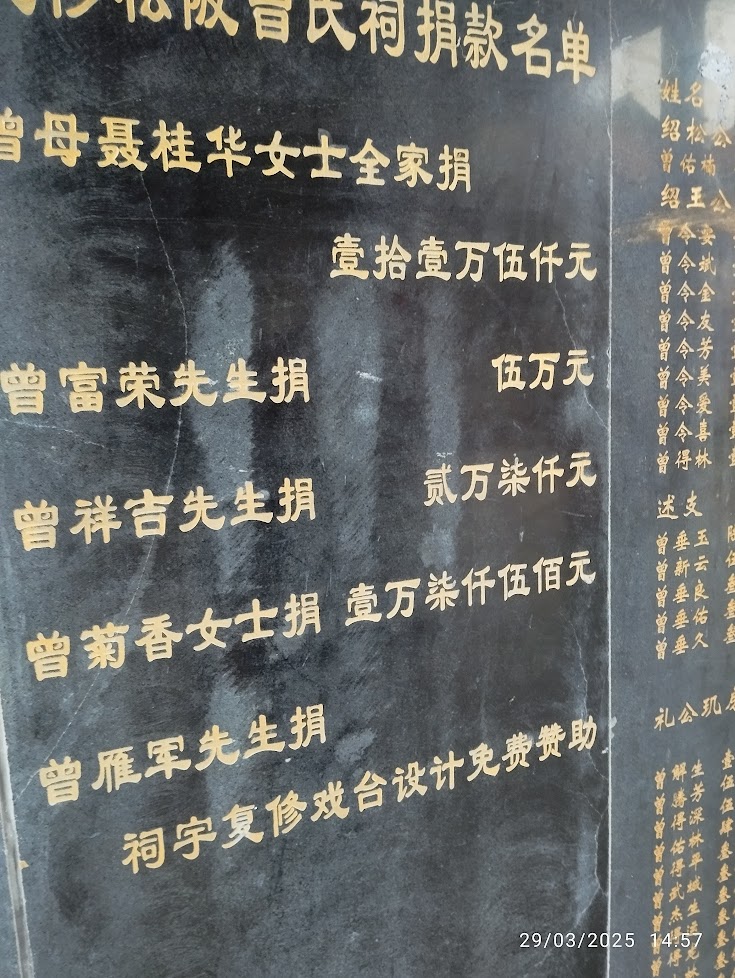 松阪曾氏祠捐款名单
曾母聂桂华女士全家捐
壹拾壹万伍仟元
曾富荣先生捐 伍万元
曾祥吉先生捐 贰万柒仟元
曾菊香女士捐 壹万柒仟伍佰元
曾雁军先生捐
祠宇复修戏台设计免费赞助
姓名
绍松公
曾佑楠
绍王公
曾令安
曾令斌
曾令金
曾令友
曾令芳
曾令美
曾令爱
曾令喜
曾得林
述支
曾垂玉
曾垂云
曾新良
曾垂佑
曾垂久
礼公玑
29/03/2025 14:57